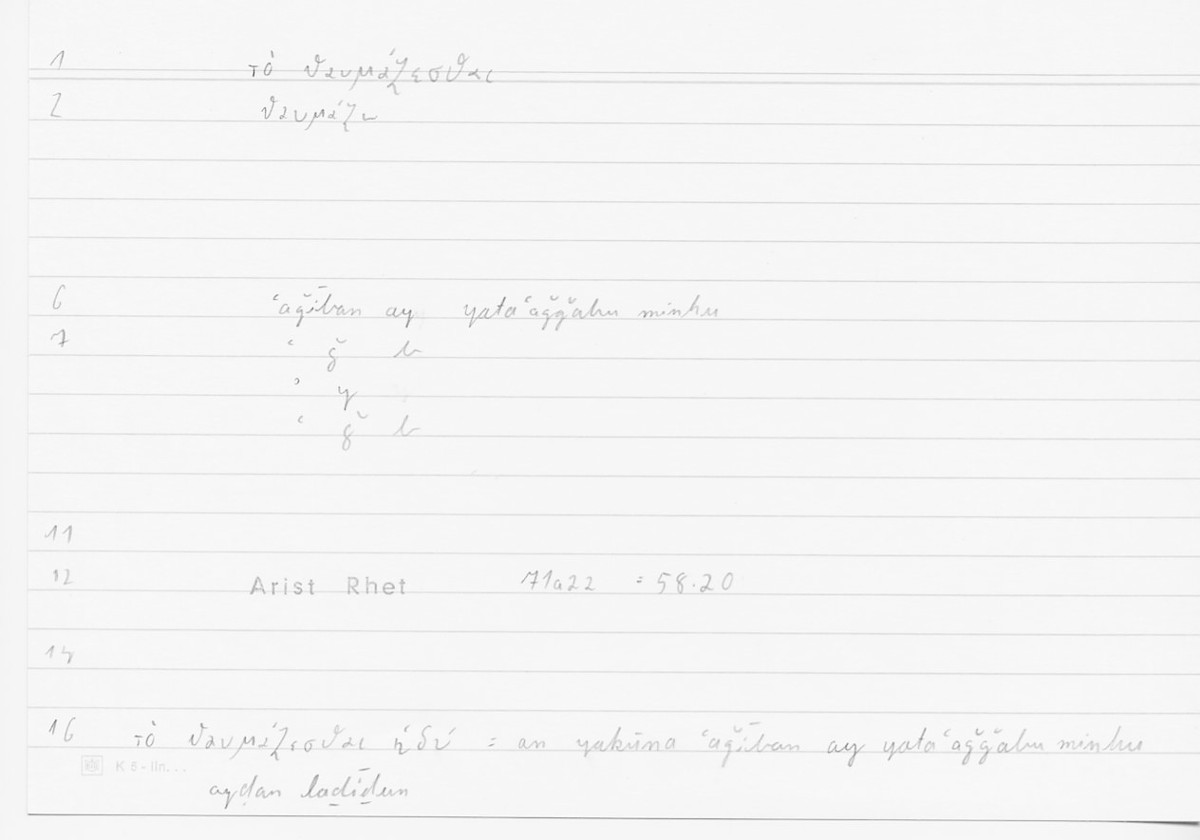 1 τὸ θαυμάζεσθαι
2 θαυμάζω
6 ʿaǧīban ay yataʿaǧǧabu minhu
7 ʿ ǧ b
ʾ y
ʿ ǧ b
11
12 Arist Rhet 71a22 = 58.20
14
16 τὸ θαυμάζεσθαι ἡδύ = an yakūna ʿaǧīban ay yataʿaǧǧabu minhu
K 5 - lin...
ayḍan laḏīḏun